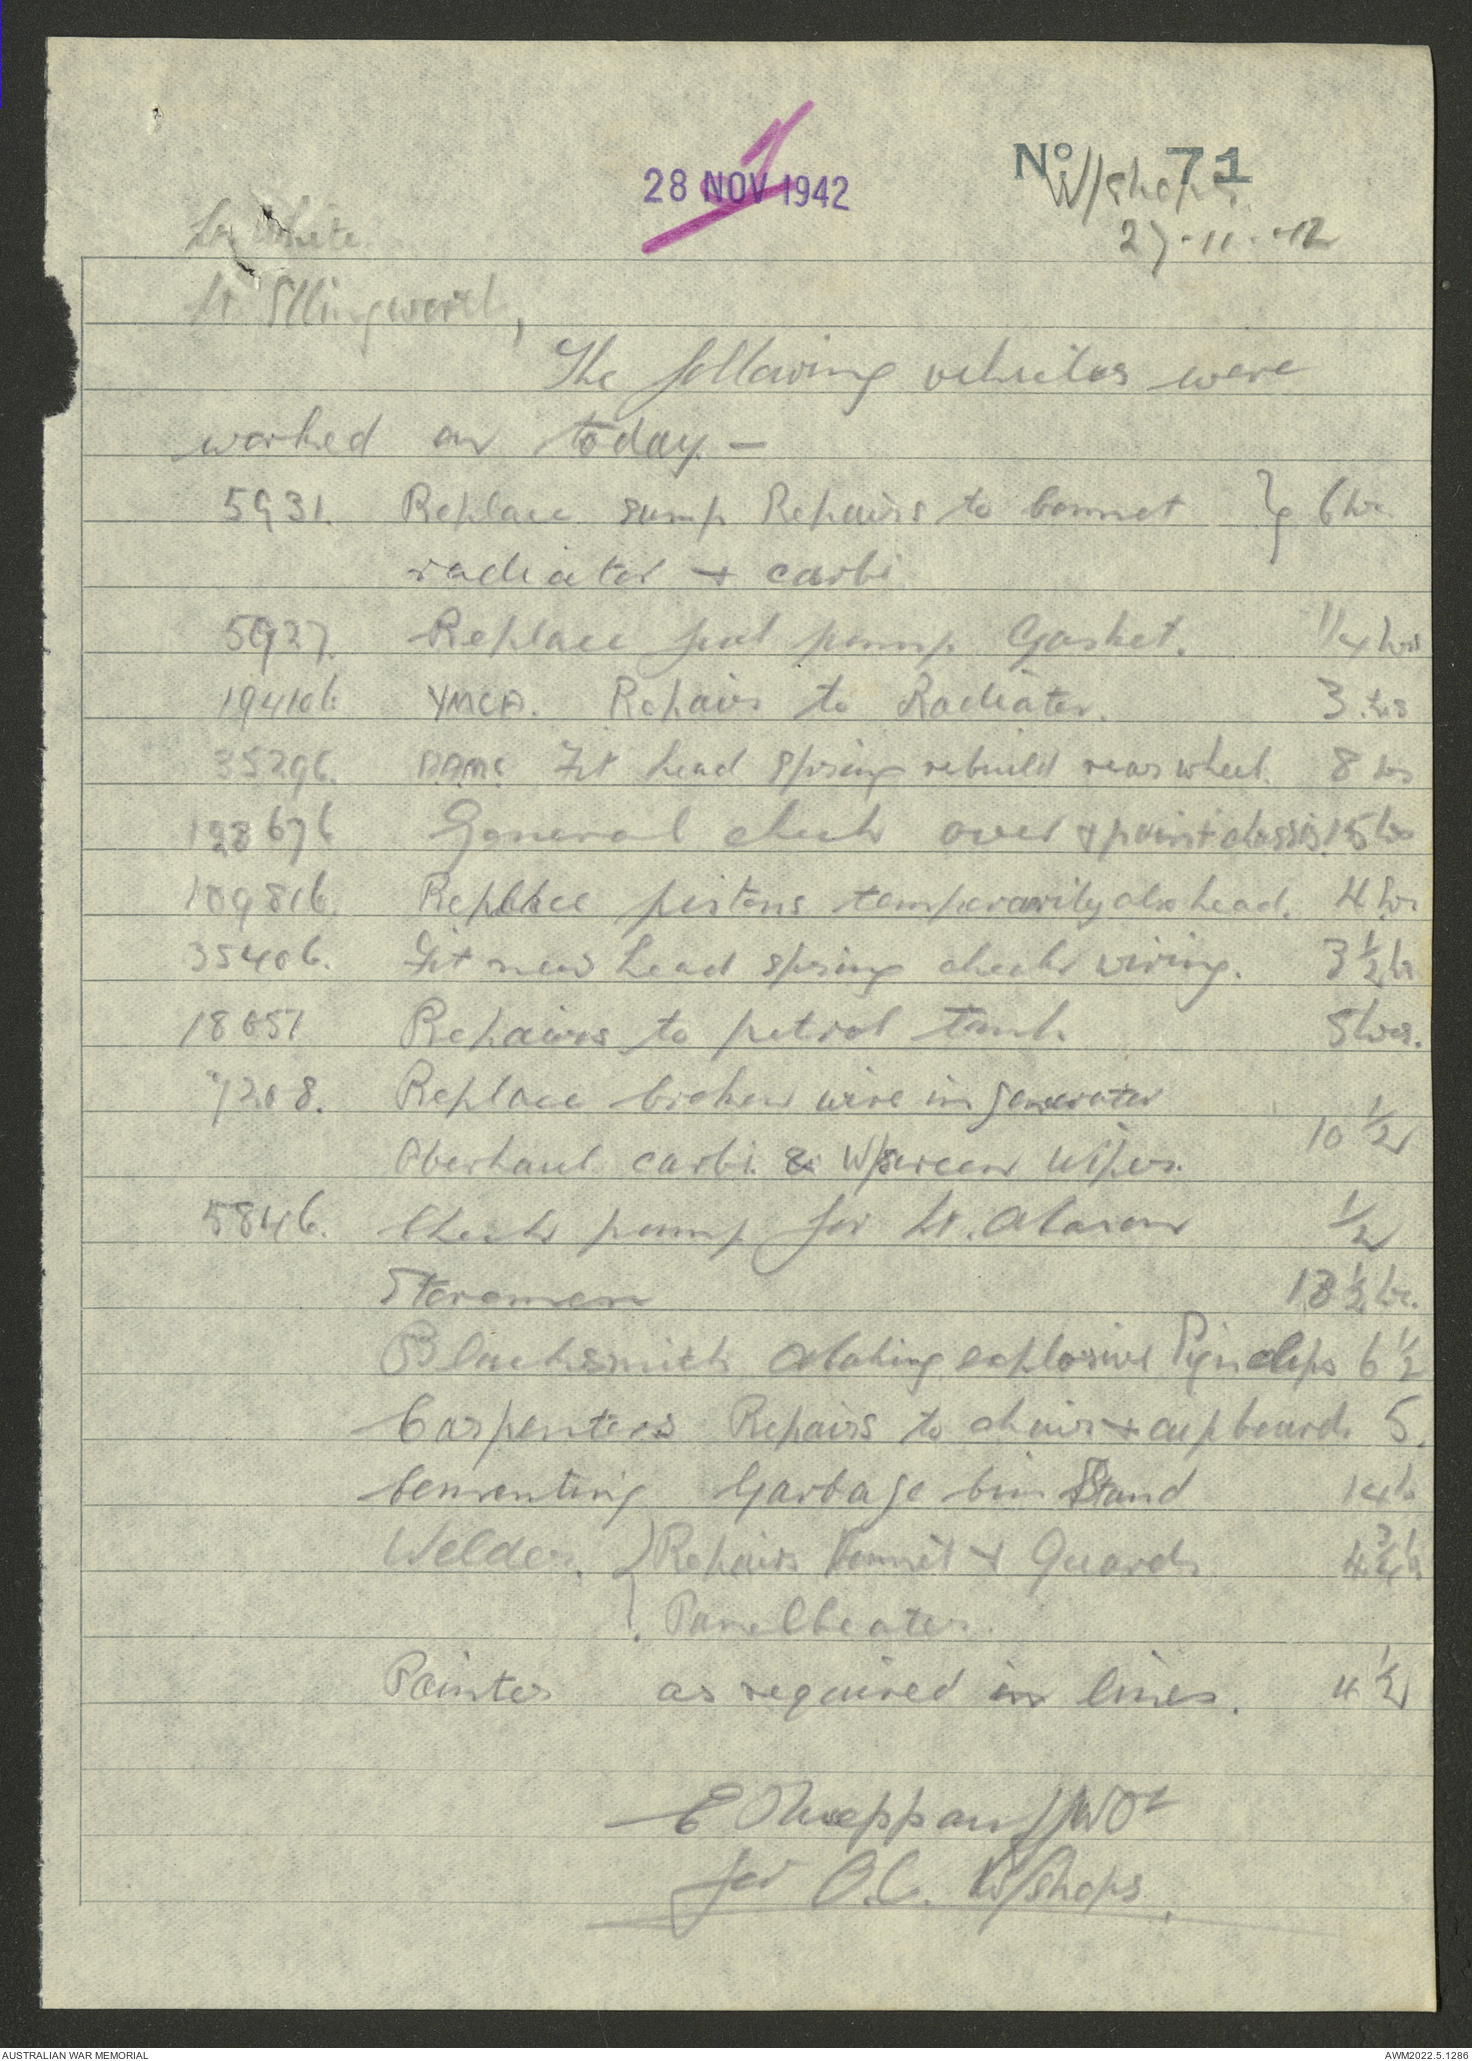 28 NOV 1942
No 71
W/shops
27-11-42
White
Lt. Illingworth,
The following vehicles were
worked on today. —
5931. Replace sump Repairs to bonnet } 6 hr.
radiator + carbi
5927. Replace fuel pump Gasket. 1 1/4 hrs
194106 YMCA. Repairs to Radiator. 3 hrs
35296. Fit head spring rebuild rear wheel. 8 hrs
128676 General check over + paint chassis. 15 hrs
109816. Replace pistons temporarily also head. 4 hrs
35406. Fit new head spring check wiring. 3 1/2 hr
18051 Repairs to petrol tank. 5 hrs.
7208. Replace broken wire in generator
Overhaul carbi. & W/screen Wiper. 10 1/2
5846. Check pump for Lt. 1/2
Storemen 13 1/2 hr.
Blacksmith Making explosive Pign clips 6 1/2
Carpenters Repairs to chair + cupboard. 5.
Cementing Garbage bin Stand 14 h
Welder. } Repairs Bonnet + Guards 4 3/4 h
Panelbeater.
Painter as required in lines. 4 1/2
for O.C. W/Shops.
AUSTRALIAN WAR MEMORIAL
AWM2022.5.1286